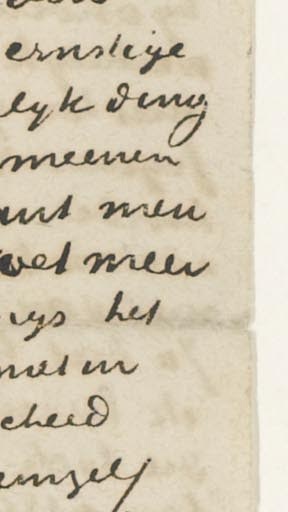 ernstige
lyk ding
meenen
unt men
wel meer
ys het
met in
cheed
emzelf